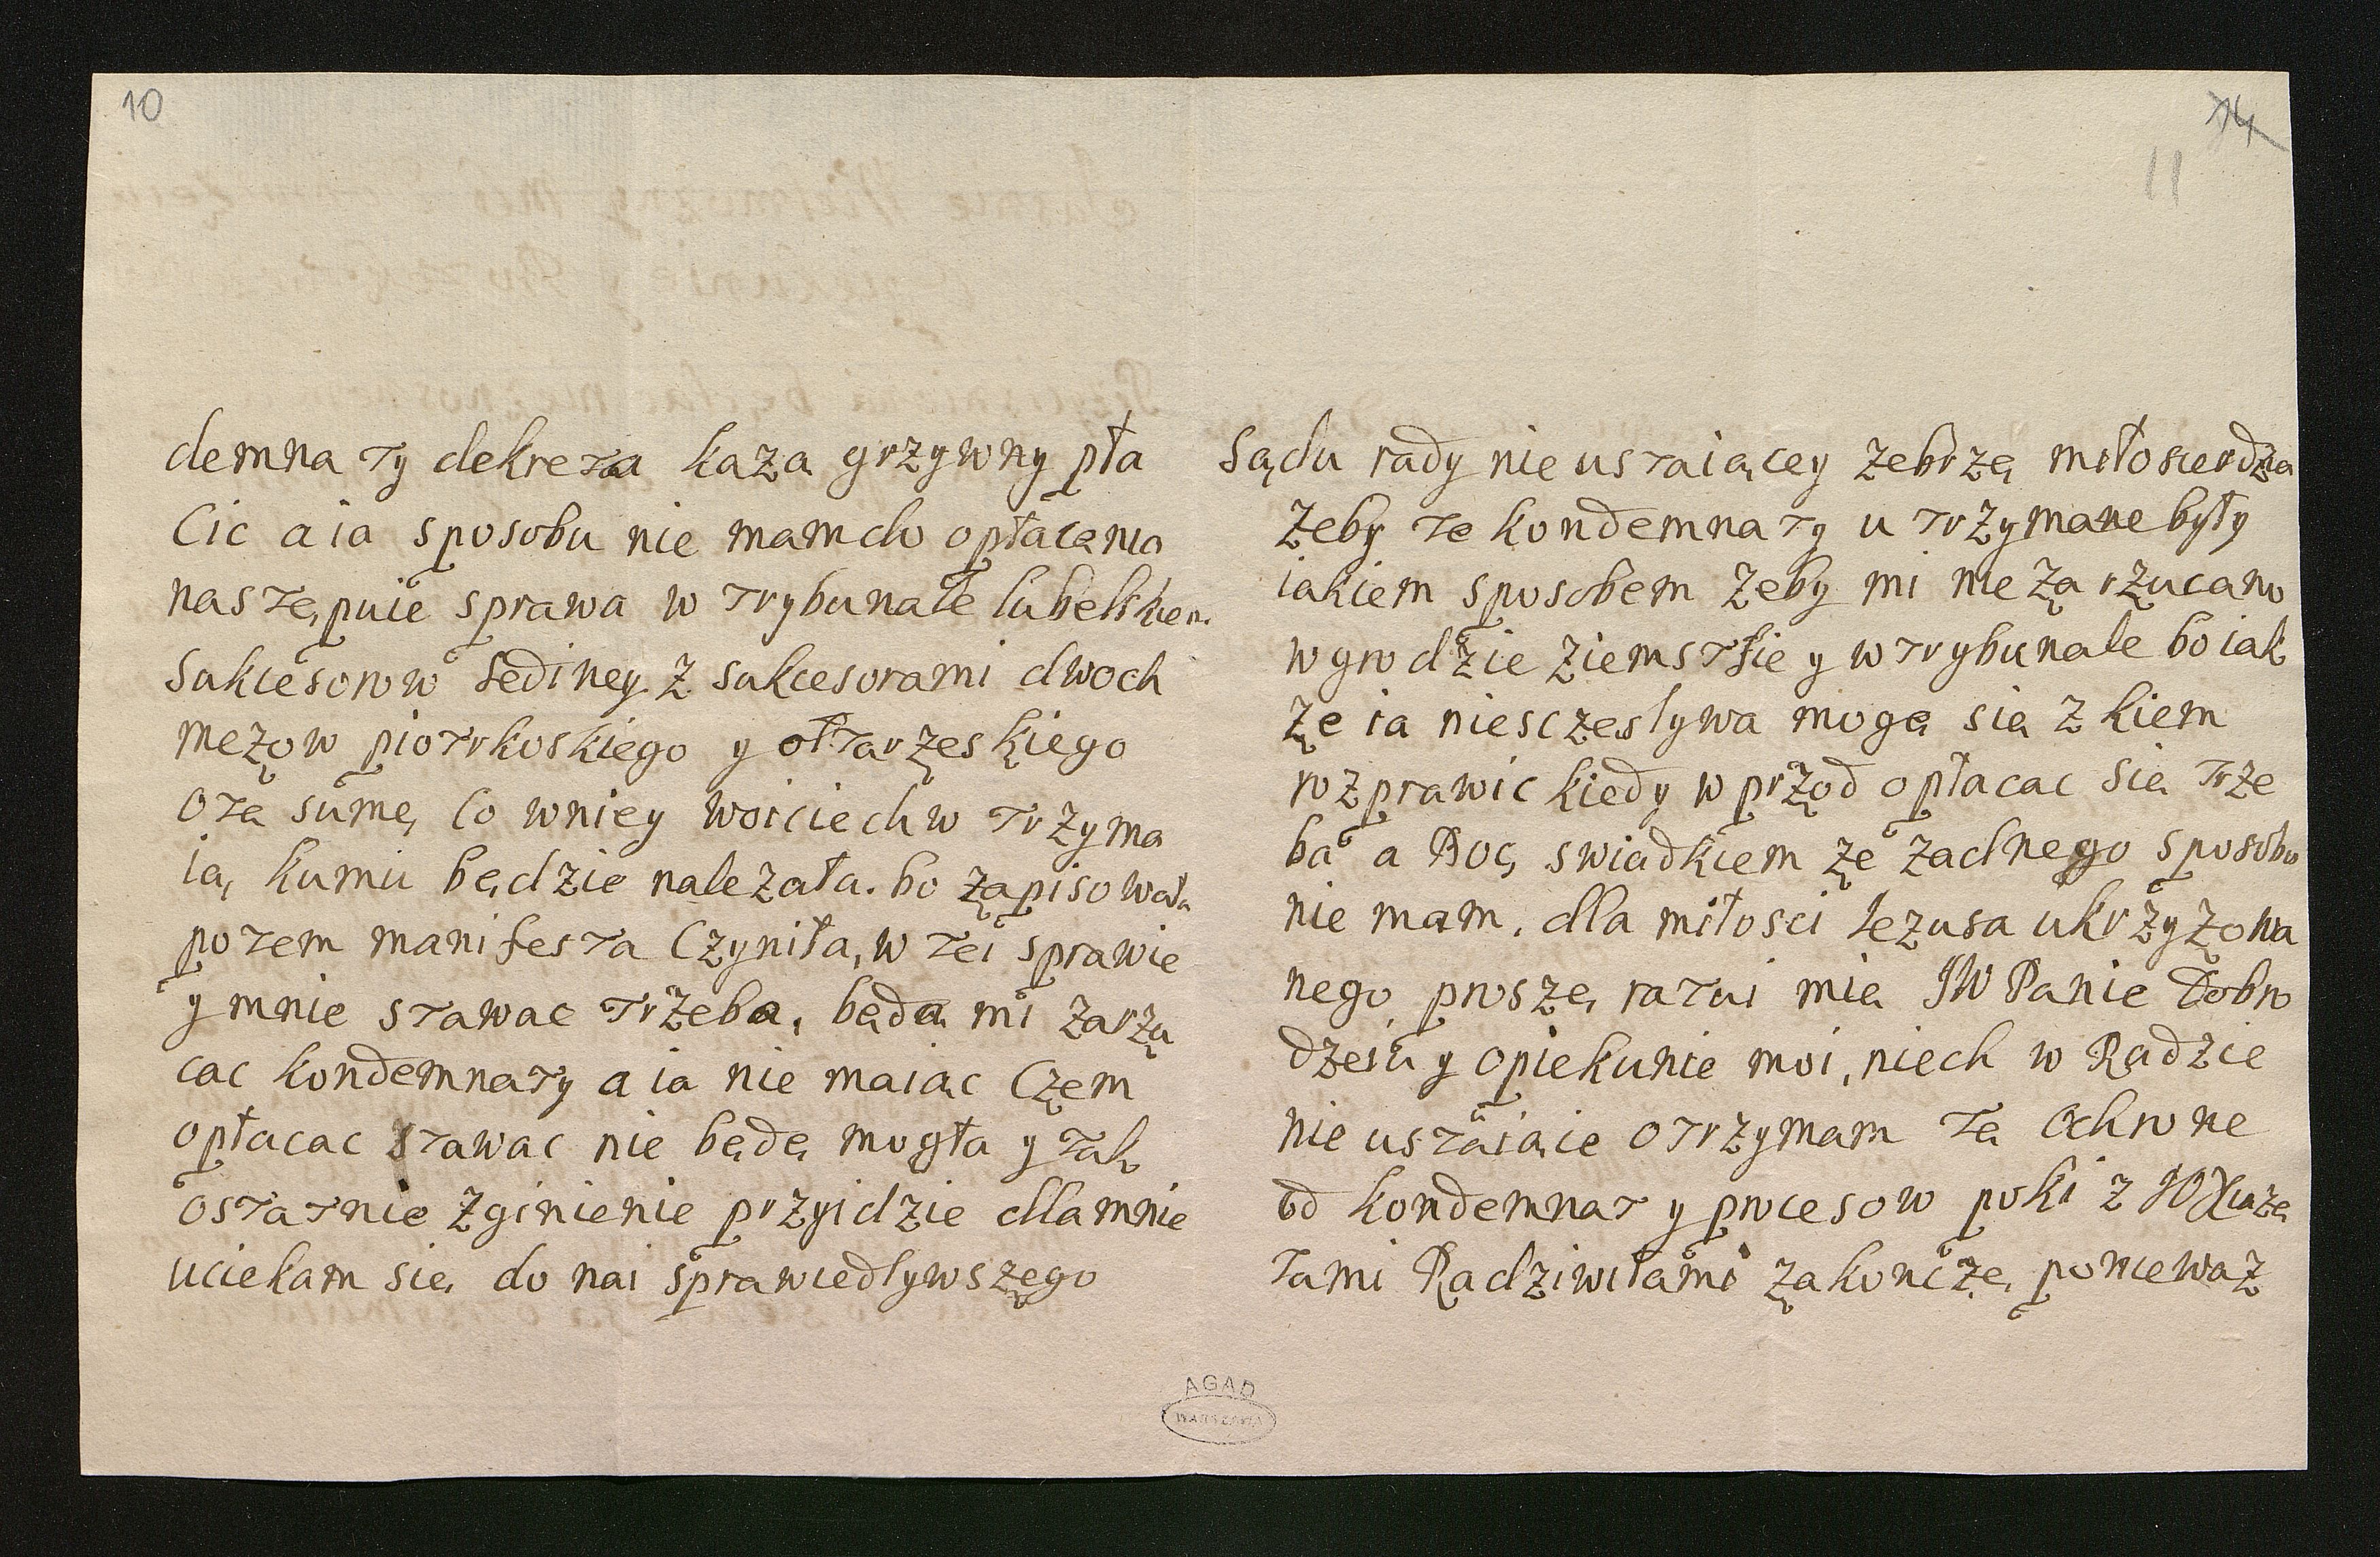 10
demnaty dekreta kaza grzywny pła
cic a ia sposobu nie mam do opłacenia
nastę puie sprawa w trybunale lubelskiem
Sukcesorow Jediney z sukcesorami dwoch
mezow piotrkoskiego y ołtarzeskiego
otę sume co wniey woiciechw trzyma
ią kumu będzie nalezała. bo zapisowała
potem manifesta czyniła, w tei sprawie
y mnie stawac trzeba, będa mi zarzu
cac kondemnaty a ia nie maiąc czem
opłacac stawac nie będę mogła y tak
ostatnie zginienie przyidzie dla mnie
uciekam się do nai sprawiedlywszego
14
11
Sądu rady nie ustaiącey zebrzę miłosierdzia
zeby te kondemnaty u trzymane były
iakiem sposobem zeby mi nie zarzucano
w grodzie ziemstfie y w trybunale bo iak
ze ia niesczeslywa mogę się z kiem
rozprawic kiedy w przod opłacac się trze
ba a Bog swiadkiem ze zadnego sposobu
nie mam. dla miłosci Iezusa ukrzyzowa
nego proszę ratui mię JW Panie Dobro
dzeiu y opiekunie moi, niech w Radzie
nie ustaiącie otrzymam tę ochrone
od kondemnat y procesow poki z JO Xiązę
tami Radziwiłami zakonczę poniewaz
AGAD
WARSZAWA